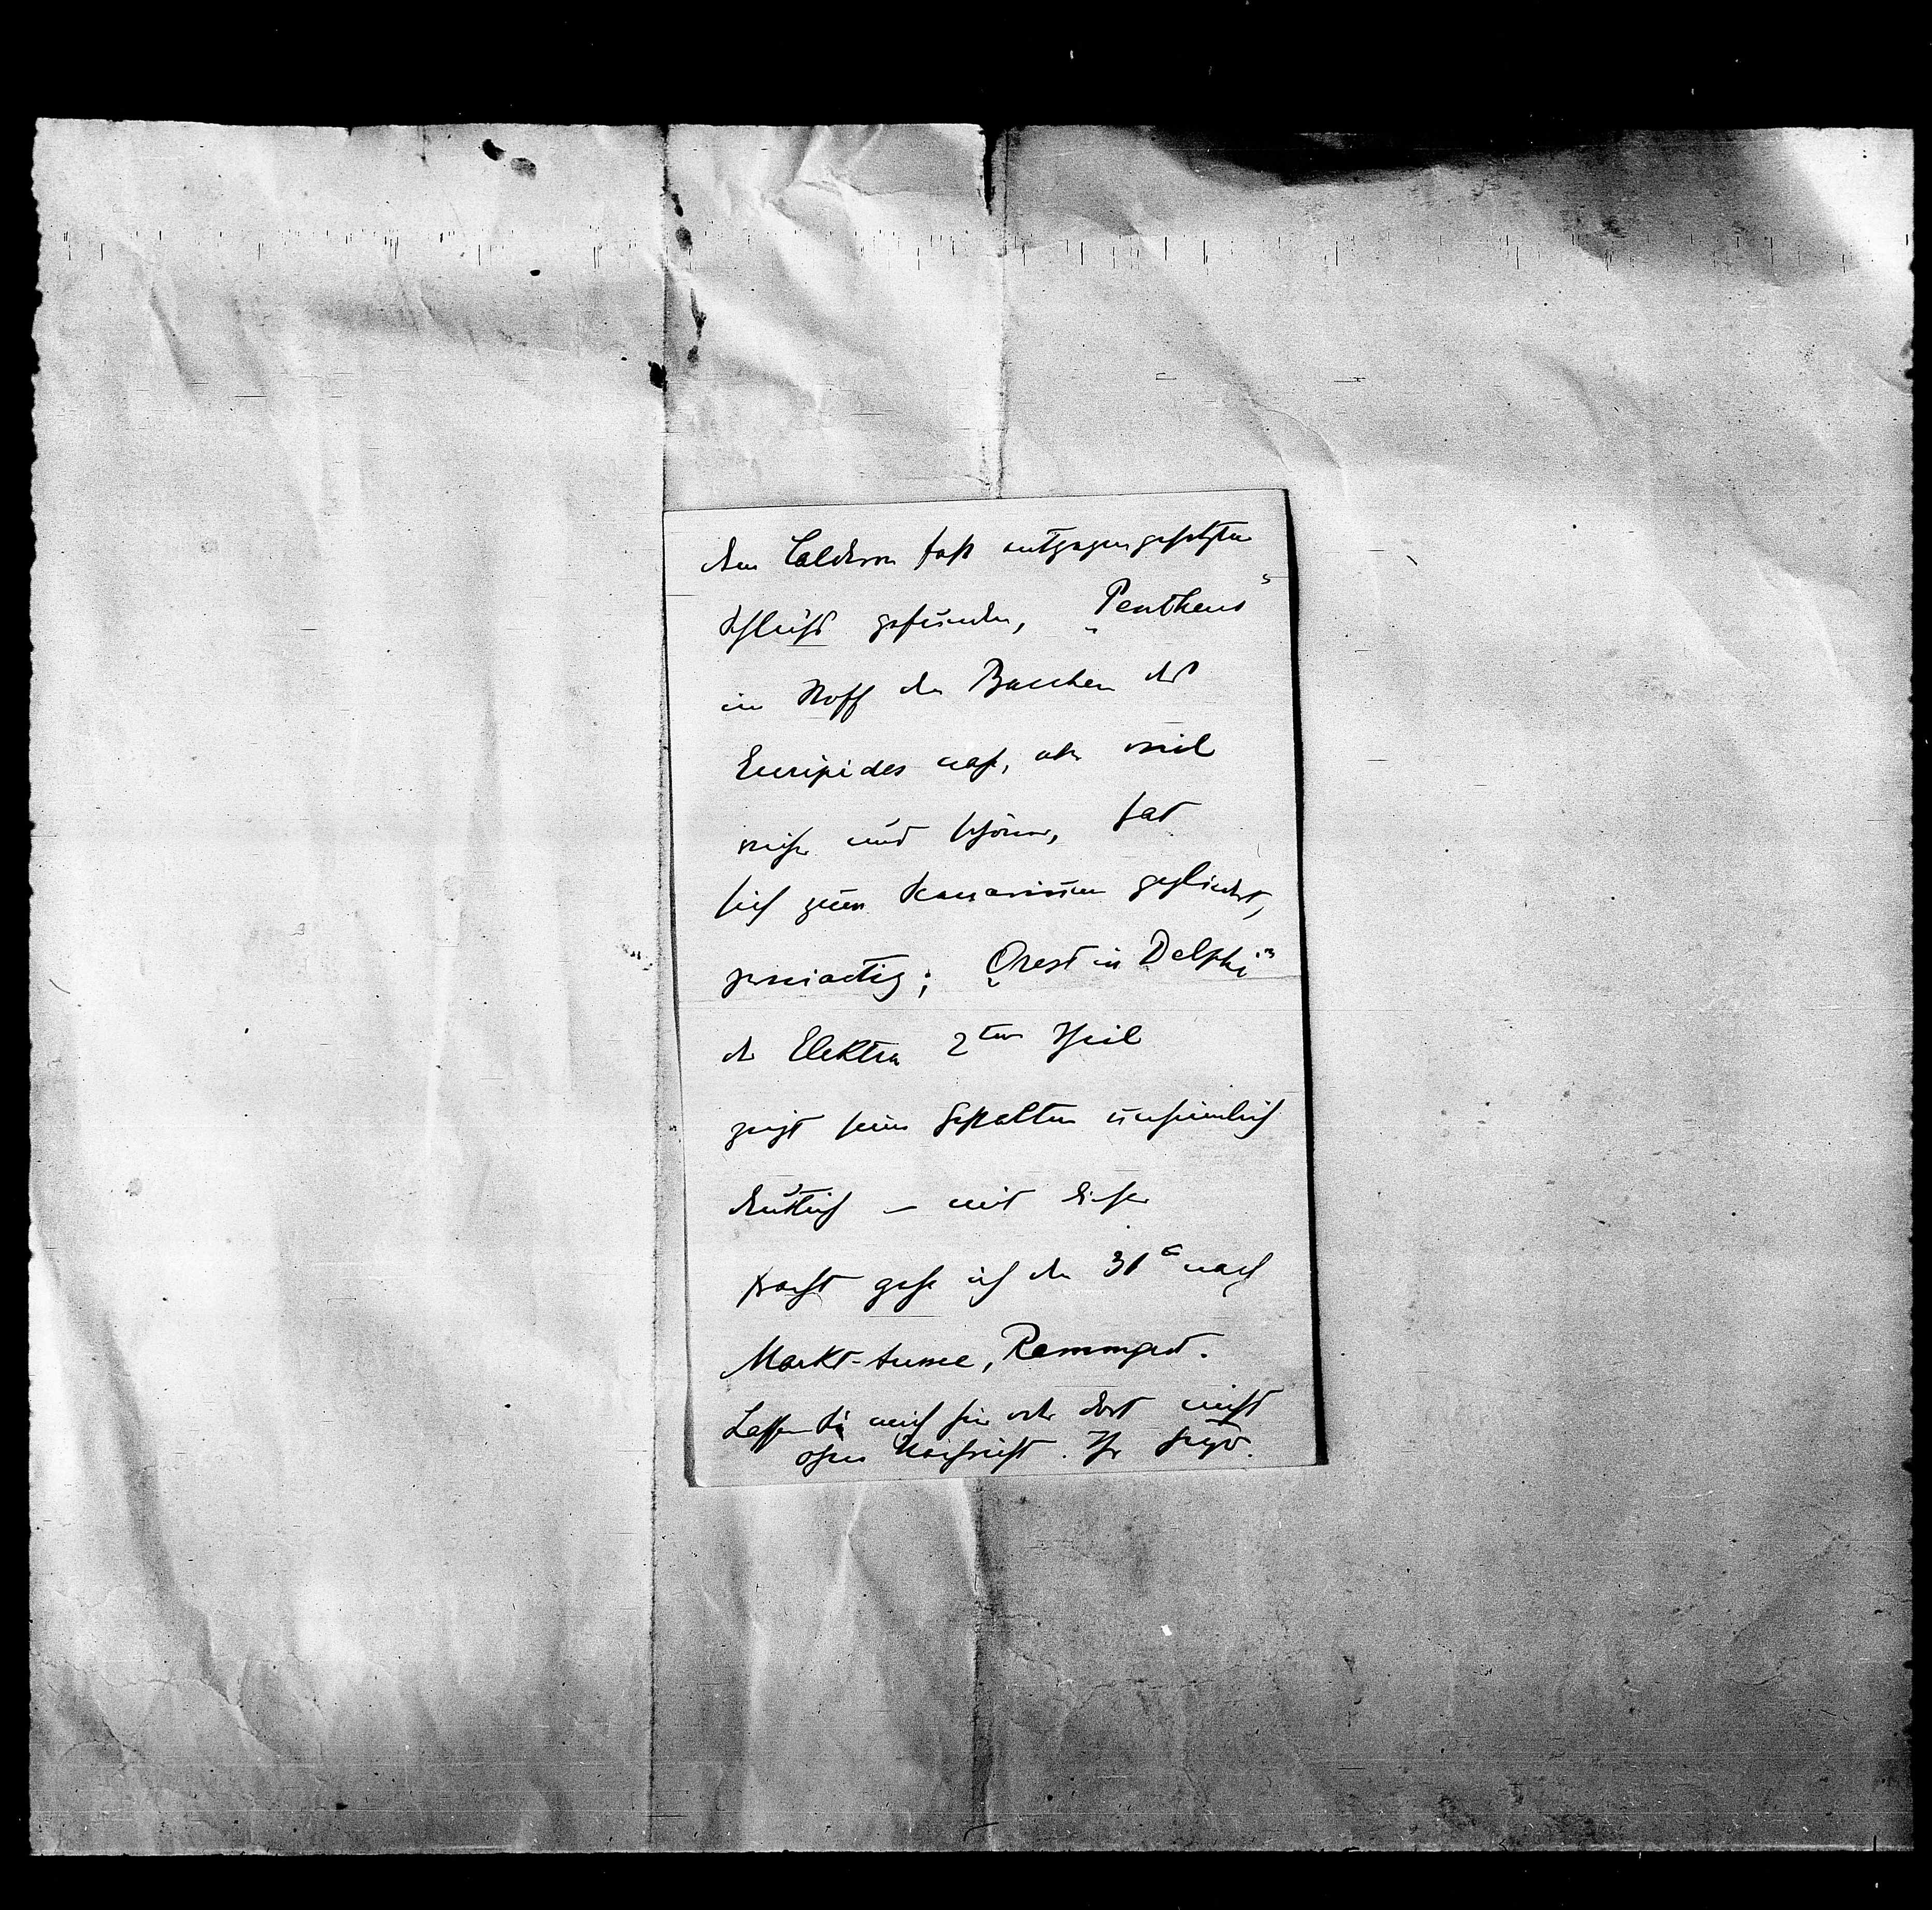 dem Calderon fast entgegengesetzten
Schluß gefunden, „Pentheus"
im Stoff den Bacchen des
Euripides nah, aber viel
reicher und schöner, hat
sich zum Scenarium gegliedert,
zweiactig; „Orest in Delphi"
der Elektra 2ter Theil
zeigt seine Gestalten unheimlich
deutlich – mit dieser
Fracht gehe ich den 31n nach
Markt-Aussee, Ramgut.
Lassen Sie mich hier oder dort nicht
ohne Nachricht. Ihr Hugo.